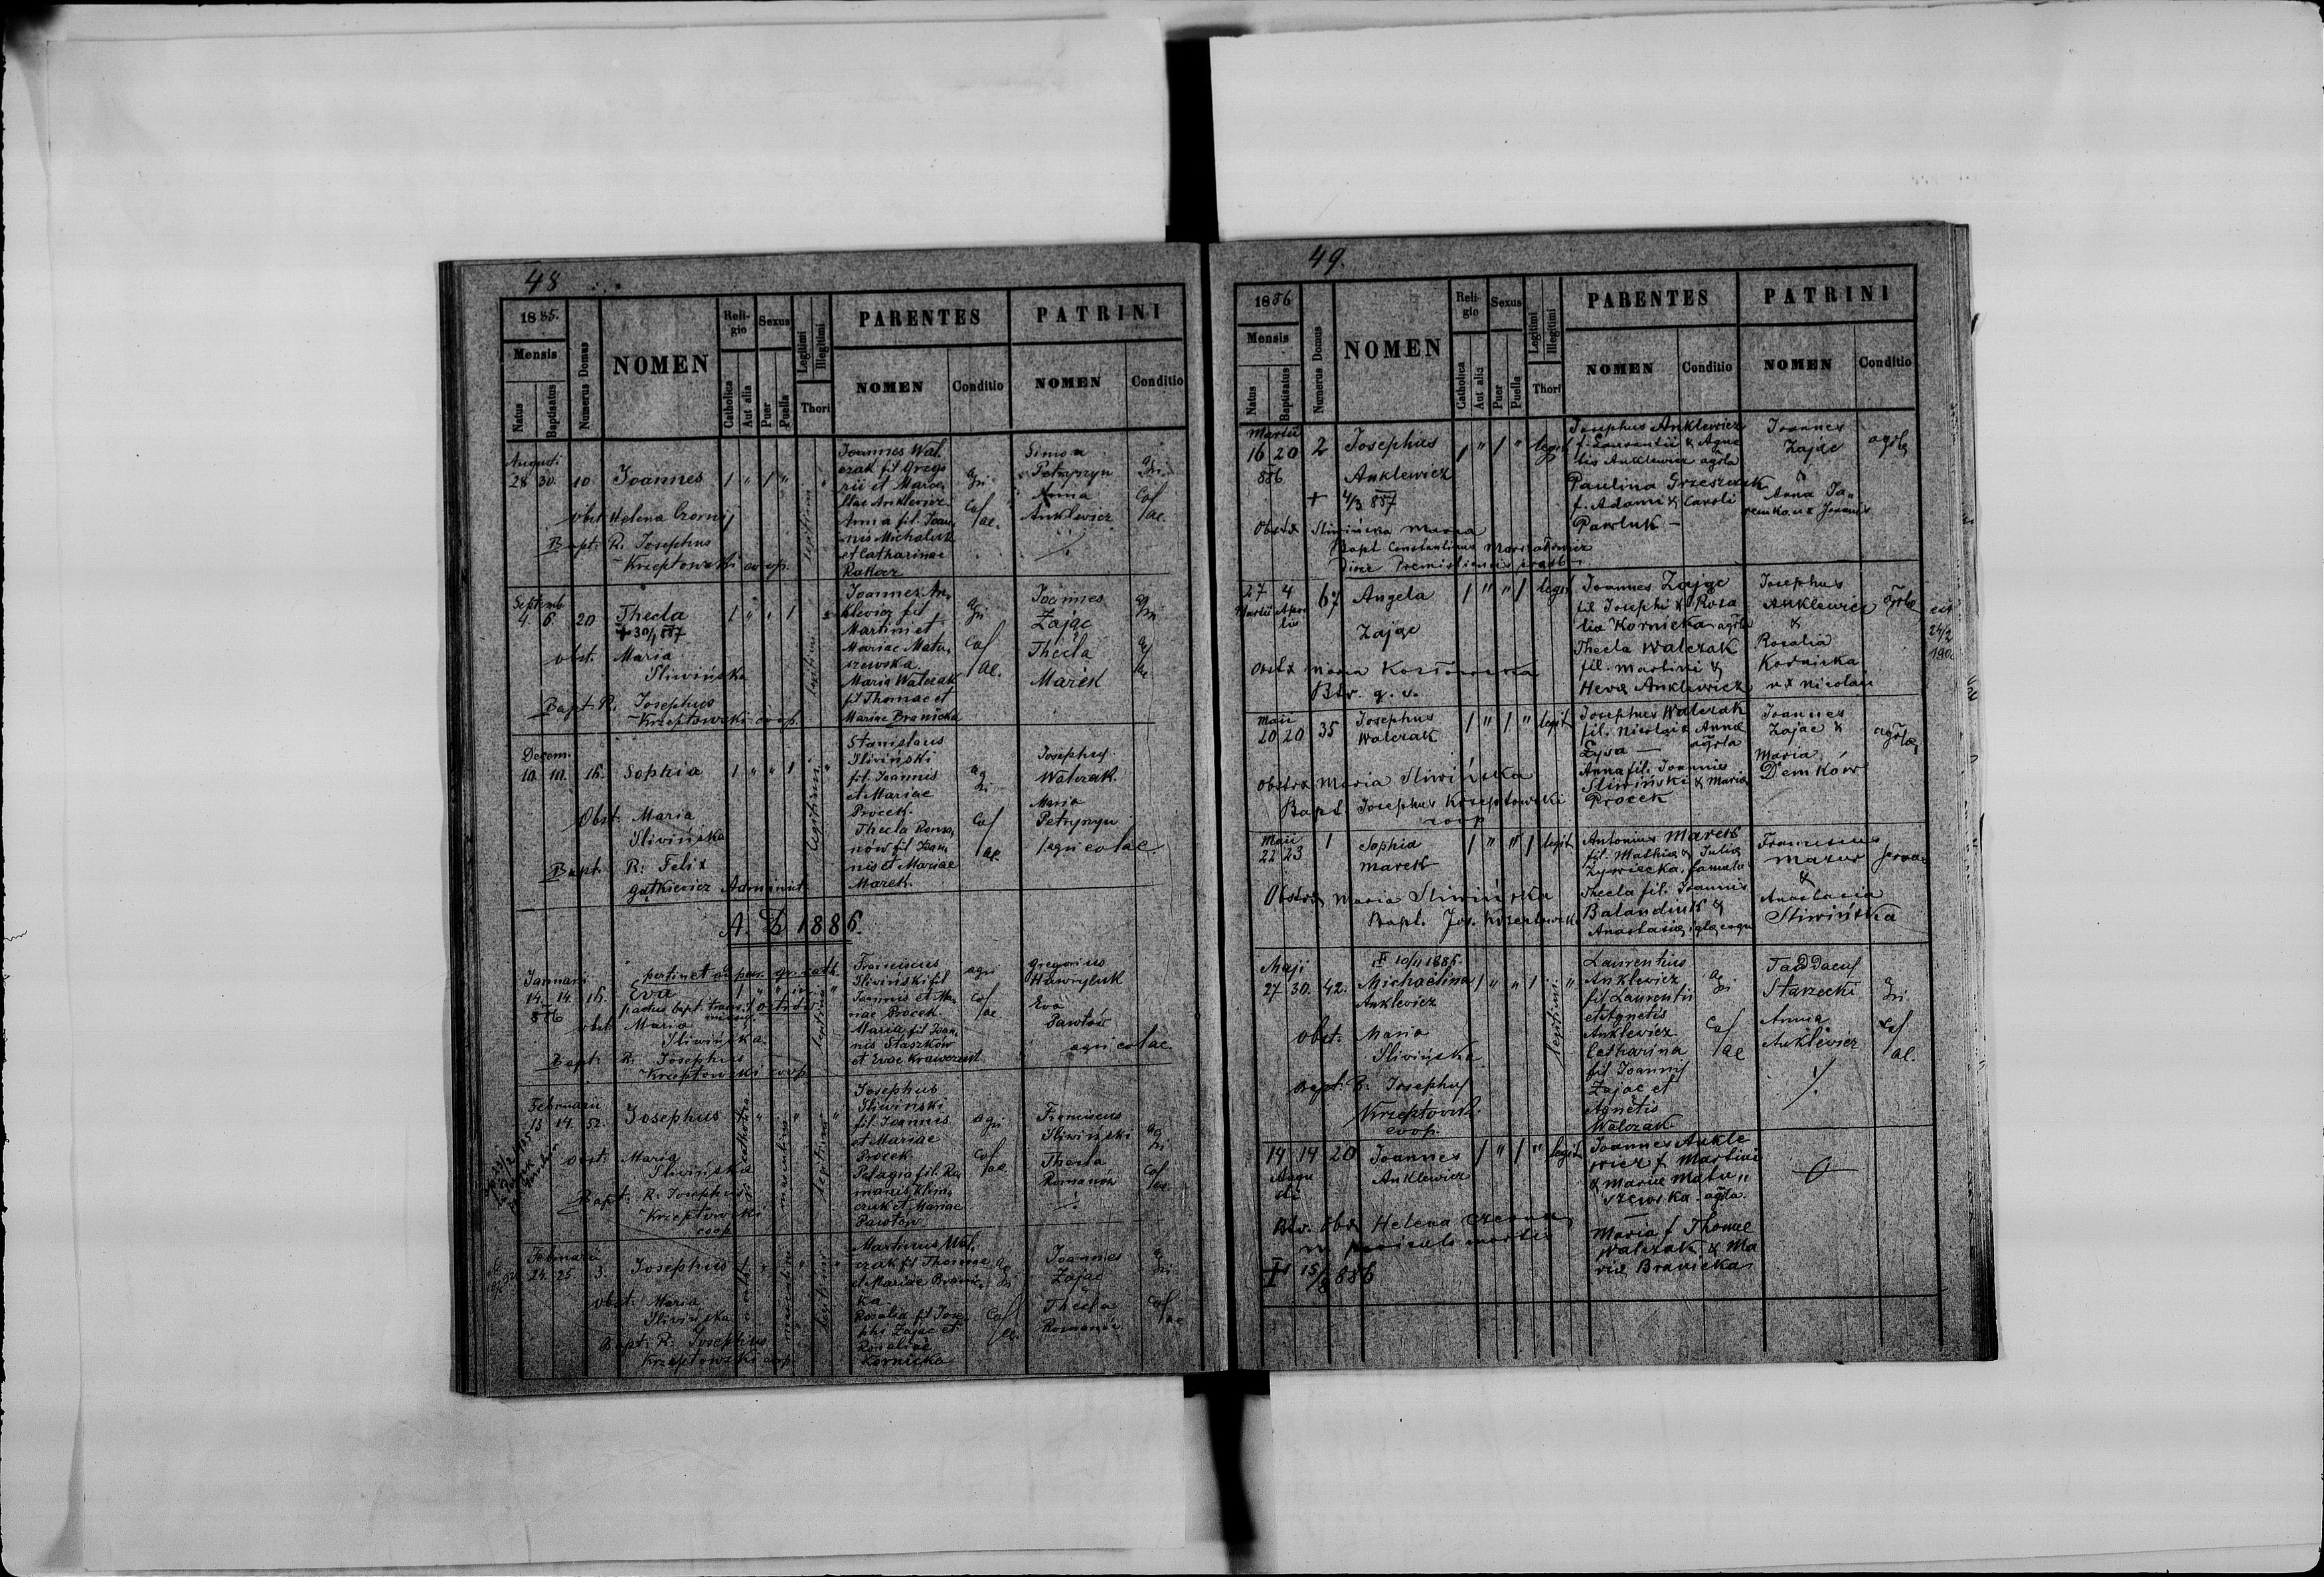 48
1885.
Mensis
Natus
Baptisatus
Numerus Domus
NOMEN
Reli-
gio
Catholica
Aut alia
Sexus
Puer
Puella
Legitimi
Illegitimi
Thori
PARENTES
NOMEN
Conditio
PATRINI
NOMEN
Conditio
Augusti
28 30. 10 Joannes 1 " 1 "
obst. Helena Czornij
Bapt. R. Josephus
Krzeptowski coop.
legitimi
Joannes Wal,
czak fil Grego
rii et Marce,
llae Anklewicz
Anna fil. Joan,
nis Michaluk
et Catharinae
Rakocz
Simon
Petrynyn
Anna
Anklewicz
Septemb
4. 6. 20 Thecla 1 " " 1
+ 30/1 887
obst. Maria
Sliwińska
Bapt. R. Josephus
Krzeptowski coop.
Joannes An,
klewicz fil
Martini et
Mariae Matu,
szewska.
Maria Walczak
fil Thomae et
Mariae Branicka
Joannes
Zając
Thecla
Marek
Decem.
10. 10. 16. Sophia 1 " " 1
Obst. Maria
Sliwińska
Bapt. R: Felix
Gątkiewicz Administ.
legitimi
Stanislaus
Sliwiński
fil. Joannis
et Mariae
Procek.
Thecla Roma,
now fil Joan,
nis et Mariae
Marek.
Josephus
Walczak.
Maria
Petrynyn
agricolae
A. D 1886.
Januari
pertinet ad par. gr. cath.
14. 14. 16. Eva
886
obst. Maria
Sliwińska.
Bapt: R. Josephus
Krzeptowski coop.
Franciscus
Sliwiński fil
Joannis et Ma,
riae Procek.
Maria fil Joan,
nis Staszków
et Evae Krawczuk
agri
Gregorius
Hawryluk
Eva
Pawłów
agricolae
Februarii
13 14. 52. Josephus
obst: Maria
Sliwińska
Bapt: R. Josephus
Krzeptowski
coop
catholica
masculini
legitimi
Josephus
Sliwiński
fil. Joannis
et Mariae
Procek.
Pelagia fil. Ro,
manis Klim,
czuk et Mariae
Pawłow
Franciscus
Sliwiński
Thecla
Romanów
Februarii
24. 25. 3. Josephus
obst: Maria
Sliwińska
Bapt: R: Josephus
Krzeptowski coop
Martinus Wal,
czak fil Thomae
et Mariae Branic,
ka
Rosalia fil Jose
phi Zając et
Rosaliae
Kornicka
Joannes
Zając
Thecla
Romanów
49.
1886
Mensis
Natus
Baptisatus
Numerus Domus
NOMEN
Reli-
gio
Catholica
Aut alia
Sexus
Puer
Puella
Legitimi
Illegitimi
Thori
PARENTES
NOMEN
Conditio
PATRINI
NOMEN
Conditio
Martii
16 20 2 Josephus 1 " 1 " legit
886 Anklewicz
+ 4/3 887
Obstx Sliwińska Maria
Bapt Constantinus
Josephus Anklewicz
f. Laurentii & Agne
tis Anklewicz agrla
Paulina Grzeszczuk
f. Adami & Caroli
Pawluk —
Joannes
Zając
&
Anna Ja,,
remko ux Joannis
27 4 67 Angela 1 " " 1 legit
Martii Apri
lis
Zając
Obstx Maria
Btv. q. s.
Joannes Zając
fil Josephi & Rosa
lia Kornicka agrla
Thecla Walczak
fil. Martini &
Heva Anklewicz
Josephus
Anklewicz
&
Rosalia
Kornicka
ux Nicolai
24/2
Maii
20 20 35 Josephus 1 " 1 " legit
Walczak
obstrx Maria Sliwińska
Bapt. Josephus Krzeptowski
coop
Josephus Walczak
fil. Nicolai & Anna
Łysa — agrla
Anna fil. Joannis
Sliwiński & Maria
Procek
Joannes
Zając &
Maria
Demków
Maii
22 23 1 Sophia 1 " " 1 legit
Marek
Obstrx Maria Sliwińska
Bapt. Jos. Krzeptowski
Antonius Marek
fil. Mathia & Julia
Żywiecka, famula
Thecla fil. Joannis
Balandiuk &
Anastasia
Franciscus
Mazur
&
Anastasia
Sliwińska
Maji
+ 10/11 1886.
27 30. 42. Michaëlina 1 " " 1 "
Anklewicz
obst: Maria
Sliwińska
Bapt. R: Josephus
Krzeptowski
coop.
legitimi
Laurentius
Anklewicz
fil Laurentii
et Agnetis
Anklewicz
Catharina
fil Joannis
Zając et
Agnetis
Walczak
Taddaeus
Starzecki
Anna
Anklewicz
14 14 20 Joannes 1 " 1 " legit
Augu
sti
Anklewicz
Btv. Obx Helena
in periculo mortis
+ 15/8 886
Joannes Ankle
wicz f Martini
& Mariae Matu,,
szewska. agrla.
Maria f Thomae
Walczak & Ma
riae Branicka